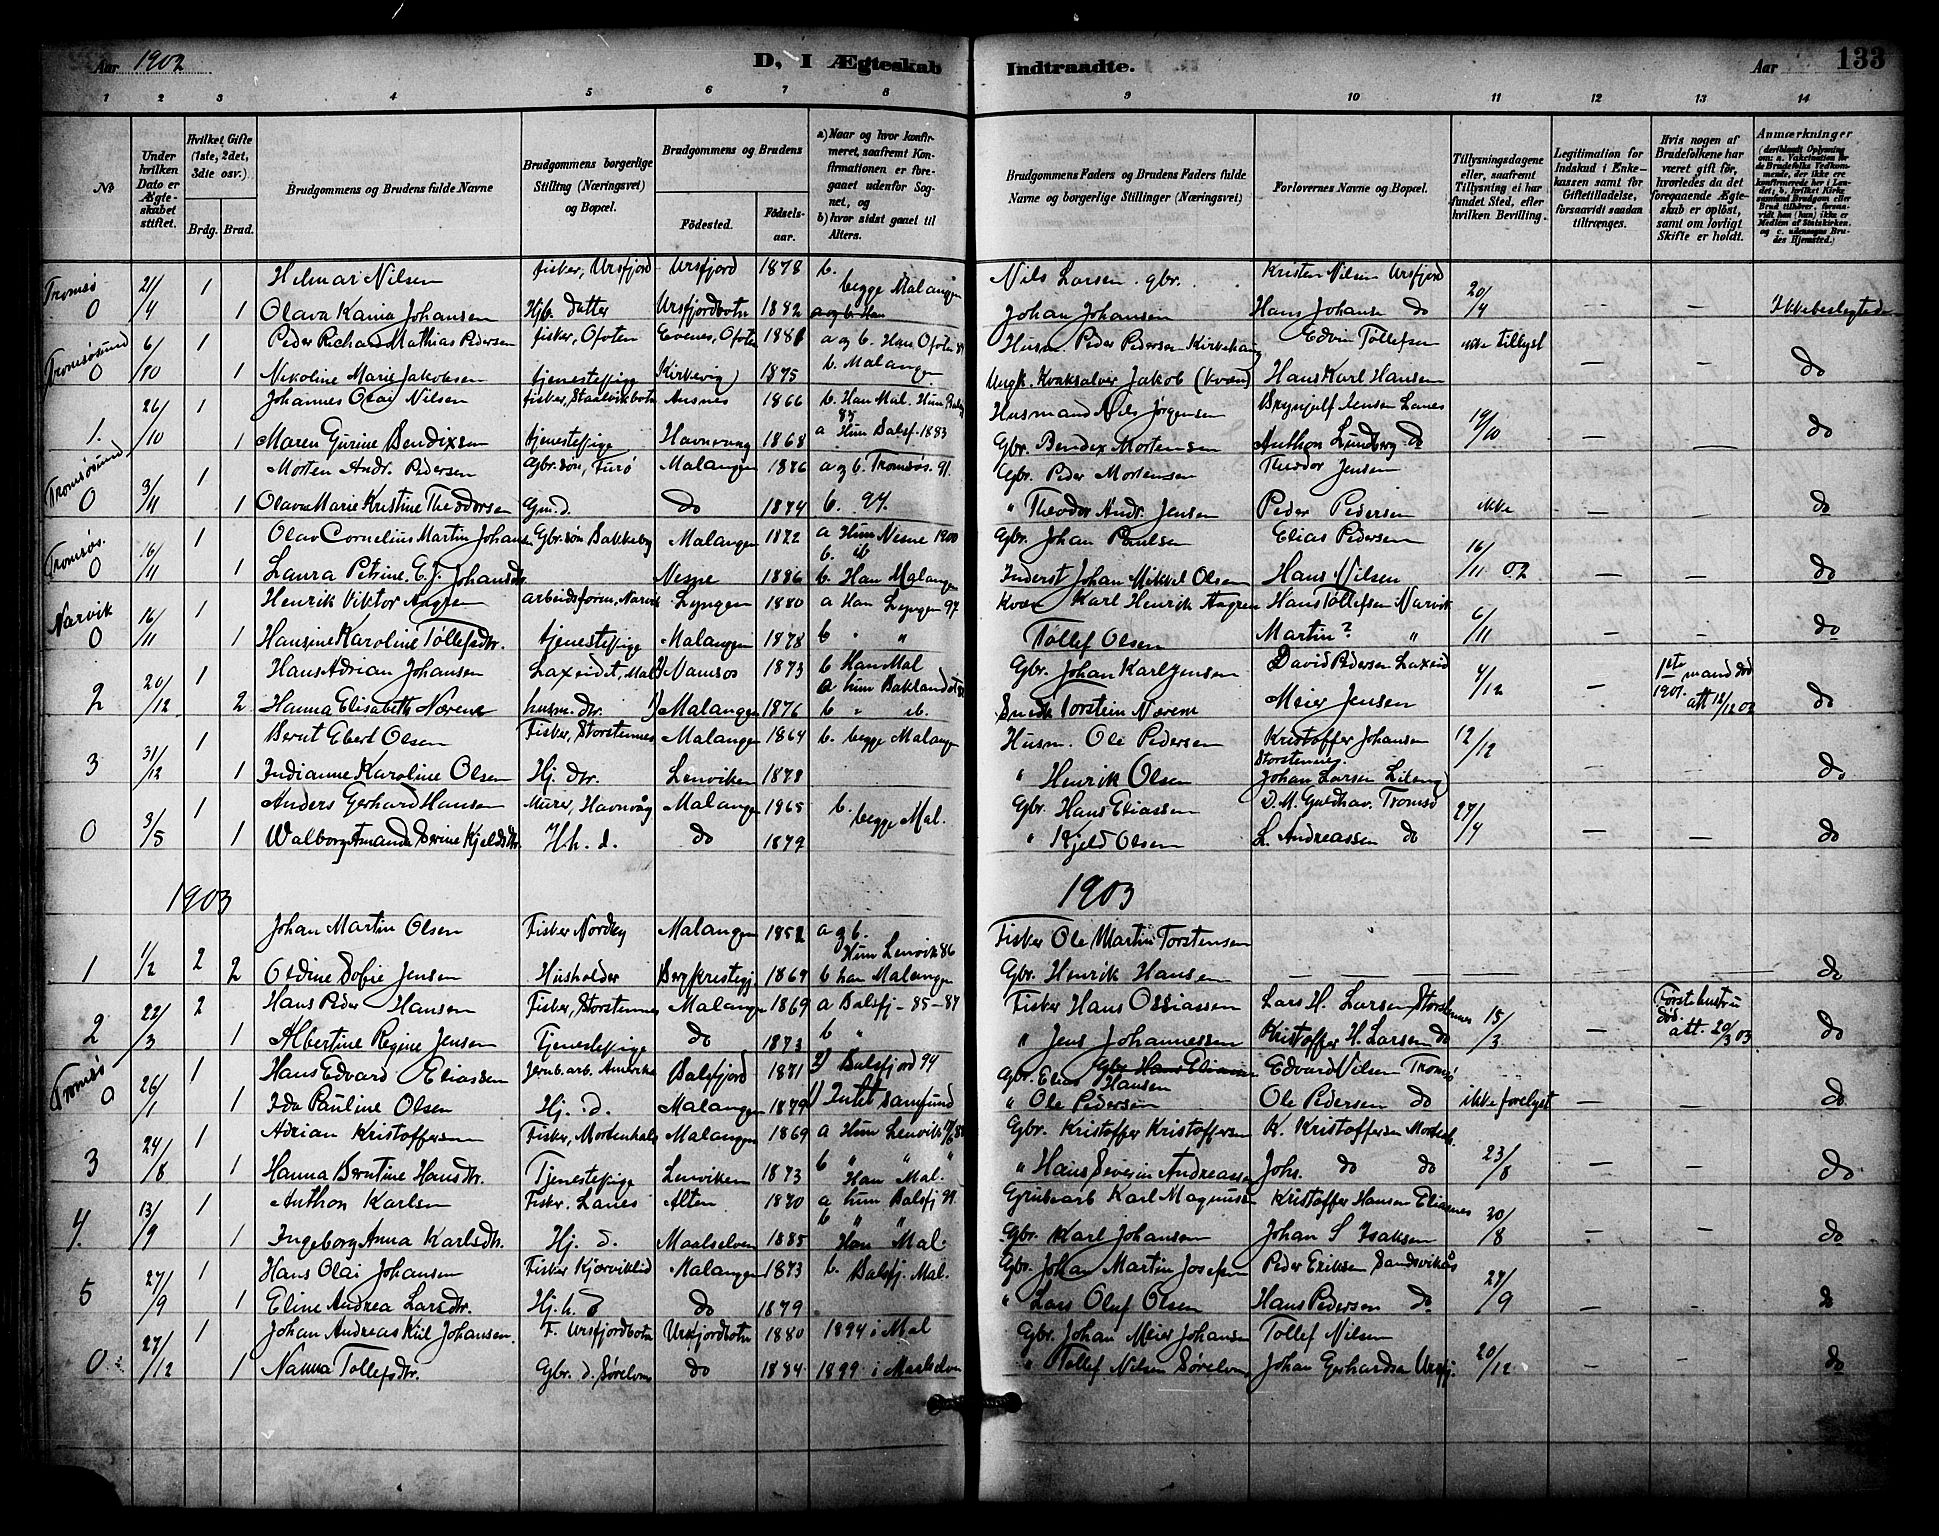 Aar 1902 D, I Ægteskab Indtraadte. Aar 133
1 2 3 4 5 6 7 8 9 10 11 12 13 14
№ | Under hvilken Dato er Ægteskabet stiftet. | Hvilket Gifte (1ste, 2det, 3die osv.) Brdg. Brud. | Brudgommens og Brudens fulde Navne | Brudgommens borgerlige Stilling (Næringsvei) og Bopæl. | Brudgommens og Brudens Fødested. Fødselsaar. | a) Naar og hvor konfirmeret, saafremt Konfirmationen er foregaaet udenfor Sognet, og b) hvor sidst gaaet til Alters. | Brudgommens Faders og Brudens Faders fulde Navne og borgerlige Stillinger (Næringsvei) | Forlovernes Navne og Bopæl. | Tillysningsdagene eller, saafremt Tillysning ei har fundet Sted, efter hvilken Bevilling. | Legitimation for Indskud i Enkekassen samt for Giftetilladelse, forsaavidt saadan tiltrænges. | Hvis nogen af Brudefolkene har været gift før, hvorledes da det foregaaende Ægteskab er opløst, samt om lovligt Skifte er holdt. | Anmærkninger
Tromsø 21/4 1 Hilmar Nilsen fisker, Ursfjord Ursfjord 1878 b. begge Malangen Nils Larsen gbr. Kristen Nilsen Ursfjord 20/4
0 1 Olava Kaina Johansen Hjb. datter Ursfjordbotn 1882 Johan Johansen Hans Johansen do — — Ikke beslegtede
Tromsøsund 6/10 1 Peder Richard Mathias Pedersen fisker, Ofoten Evenes, Ofoten 1881 a og b. Han Ofoten Husm. Peder Pedersen Edvin Tollefsen ikke tillyst
0 1 Nikoline Marie Jakobsen tjenestepige Kirkevig 1875 b. Malangen Ungk. Kvaksalver Jakob (kvæn) Hans Karl Hansen — — do
26/10 1 Johannes Olai Nilsen fisker, Ansnes 1866 b. Han Mal. Husmand Nils Jørgensen Brynjulf Jensen Lanes 19/10
1. 1 Maren Gurine Bendixsen tjenestepige Havnevaag 1868 a Hun Balsf. 1883 Gbr. Bendex Mortensen Anthon Lundberg do — — do
Tromsøsund 3/11 1 Morten Andr. Pedersen Gbr. søn, Malangen 1876 a og b. Tromsøs. 91. Gbr. Peder Mortensen Theodor Jensen
0 1 Olava Marie Kristine Theodorsen Gm. d. do 1874 b. 94. " Theodor Andr. Jensen Peder Pedersen ikke — — do
Tromsøs. 16/11 1 Olav Cornelius Martin Johansen Gbr. søn Bakkeby Malangen 1872 a Hun Nesne 1900 b. ib Gbr. Johan Paulsen Elias Pedersen 16/11 02
0 1 Laura Petrine E. J. Johansdtr. Nesne 1886 b. Han Malangen Inderst Johan Mikkel Olsen Hans Nilsen — — do
Narvik 16/11 1 Henrik Viktor Aagren arbeidsform, Narvik Lyngen 1880 a Han Lyngen 97 Kvæn Karl Henrik Aagren Hans Tollefsen Narvik 6/11
0 1 Hansine Karoline Tollefsdtr. tjenestepige Malangen 1878 b " " Tollef Olsen Martin? " — — do
20/12 1 Hans Adrian Johansen Laxeidet, Mal. Namsos 1873 b Han Mal Gbr. Johan Karl Jensen David Pedersen Laxeid 4/12 1ste mand død 1901. att 12/12 02
2 2 Hanna Elisabeth Nærem husm. dtr. Malangen 1876 a hun Baklandet b " ib. Smedk Torstein Nærem Meier Jensen — do
31/12 1 Bernt Ebert Olsen Fisker, Storstennes Malangen 1864 b. begge Malangen Husm. Ole Pedersen Kristoffer Johansen Storstennes 12/12
3 1 Indianne Karoline Olsen Hj. dtr. Lenviken 1878 " Henrik Olsen Johan Larsen — — do
3/5 1 Anders Gerhard Hansen Murer, Havnvåg Malangen 1865 b. begge Mal. Gbr. Hans Eliassen D. M. Guldhav. Tromsø 27/4
0 1 Walborg Amanda Serine Kjeldsdtr. Hh. d. do 1879 " Kjeld Olsen L. Andreassen do — — do
1903 1903
1/2 2 Johan Martin Olsen Fisker Nordby Malangen 1852 a og b. Hun Lenvik 86 Fisker Ole Martin Torstensen
1 2 Oldine Sofie Jensen Husholder 1869 b han Malangen Gbr. Henrik Hansen — — — — — do
22/3 2 Hans Peder Hansen Fisker, Storstennes Malangen 1869 a Balsfj - 85 - 87 Fisker Hans Ossiassen Lars H. Larsen Storstennes 15/3 Første hustru død. att. 20/3 03
2 1 Albertine Regine Jensen Tjenestepige do 1873 b " " Jens Johannessen Kristoffer H. Larsen do — do
Tromsø 26/1 1 Hans Edvard Eliassen Jernb. arb. Amerika Balsfjord 1871 2) Balsfjord 94 Gbr. Elias Hansen Edvard Nilsen Tromsø
0 1 Ida Pauline Olsen Hj. d. Malangen 1879 1) Intet samfund " Ole Pedersen Ole Pedersen do ikke forelyst — — do
24/8 1 Adrian Kristoffersen Fisker, Mortenhals Malangen 1869 a Hun Lenvik Gbr. Kristoffer Kristoffersen K. Kristoffersen Mortenh. 23/8
3 1 Hanna Berntine Hansdtr. Tjenestepige Lenviken 1873 b " " " Han Mal. " Hans Severin Andreassen Johs. do do — — do
13/9 1 Anthon Karlsen Fisker. Lanes Alten 1880 a hun Balsfj 91. Grubearb Karl Magnussen Kristoffer Hansen 30/8
4. 1 Ingeborg Anna Karlsdtr. Hj. d. Maalselven 1885 b " " Han Mal. Gbr. Karl Johansen Johan S Isaksen — — do
27/9 1 Hans Olai Johansen Fisker Kjørviklid Malangen 1873 b. Balsfj. Mal. Gbr. Johan Martin Josefsen Peder Eriksen Sandsvikås 27/9
5 1 Eline Andrea Larsdtr. Hj. h. d do 1879 " Lars Oluf Olsen Hans Pedersen do — — do
27/12 1 Johan Andreas Kiil Johansen. F. Ursfjordbotn Ursfjordbotn 1880 1894 i Mal Gbr. Johan Meier Johansen Tollef Nilsen 20/12
0 1 Nanna Tollefsdtr. Gbr. d. Sørelvmo do 1884 1899 i Maalselven " Tollef Nilsen Sørelvmo Johan Gerhardsen Ursfj. — — do